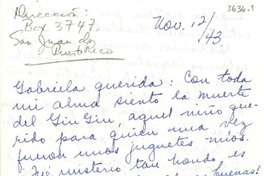 Dirección:
Box 3747
San Juan de
Puerto Rico
3636.1
Nov. 12/
43.
Gabriela querida: Con toda
mi alma siento la muerte
del Gin Gin, aquel niño que-
rido para quien una vez
fueron unos juguetes míos.
misterio tan hondo es
buenas!